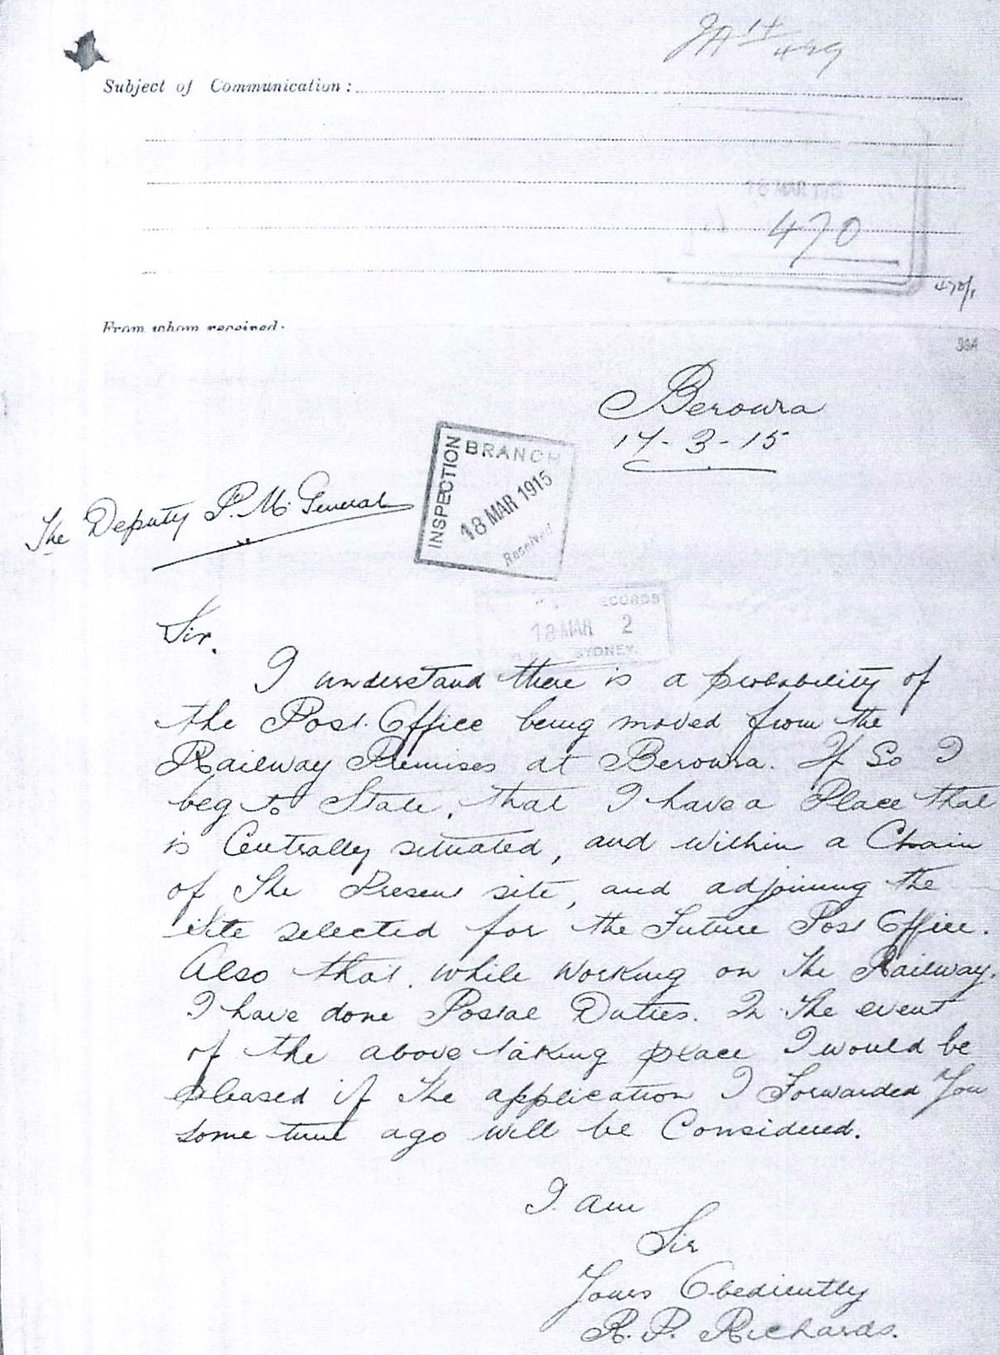 Subject of Communication:
18 MAR
470
From whom received:
Berowra
17-3-15
INSPECTION BRANCH
18 MAR 1915
Received
The Deputy P. M. General
RECORDS
18 MAR 2
SYDNEY.
Sir.
I understand there is a probability of
the Post Office being moved from the
Railway Premises at Berowra. If So I
beg to State, that I have a Place that
is Centrally situated, and within a Chain
of the Present site, and adjoining the
site selected for the Future Post Office.
Also that, while working on the Railway,
I have done Postal Duties. In the event
of the above taking place I would be
pleased if the application I Forwarded You
some time ago will be Considered.
I am
Sir
Yours Obediently
R. P. Richards.